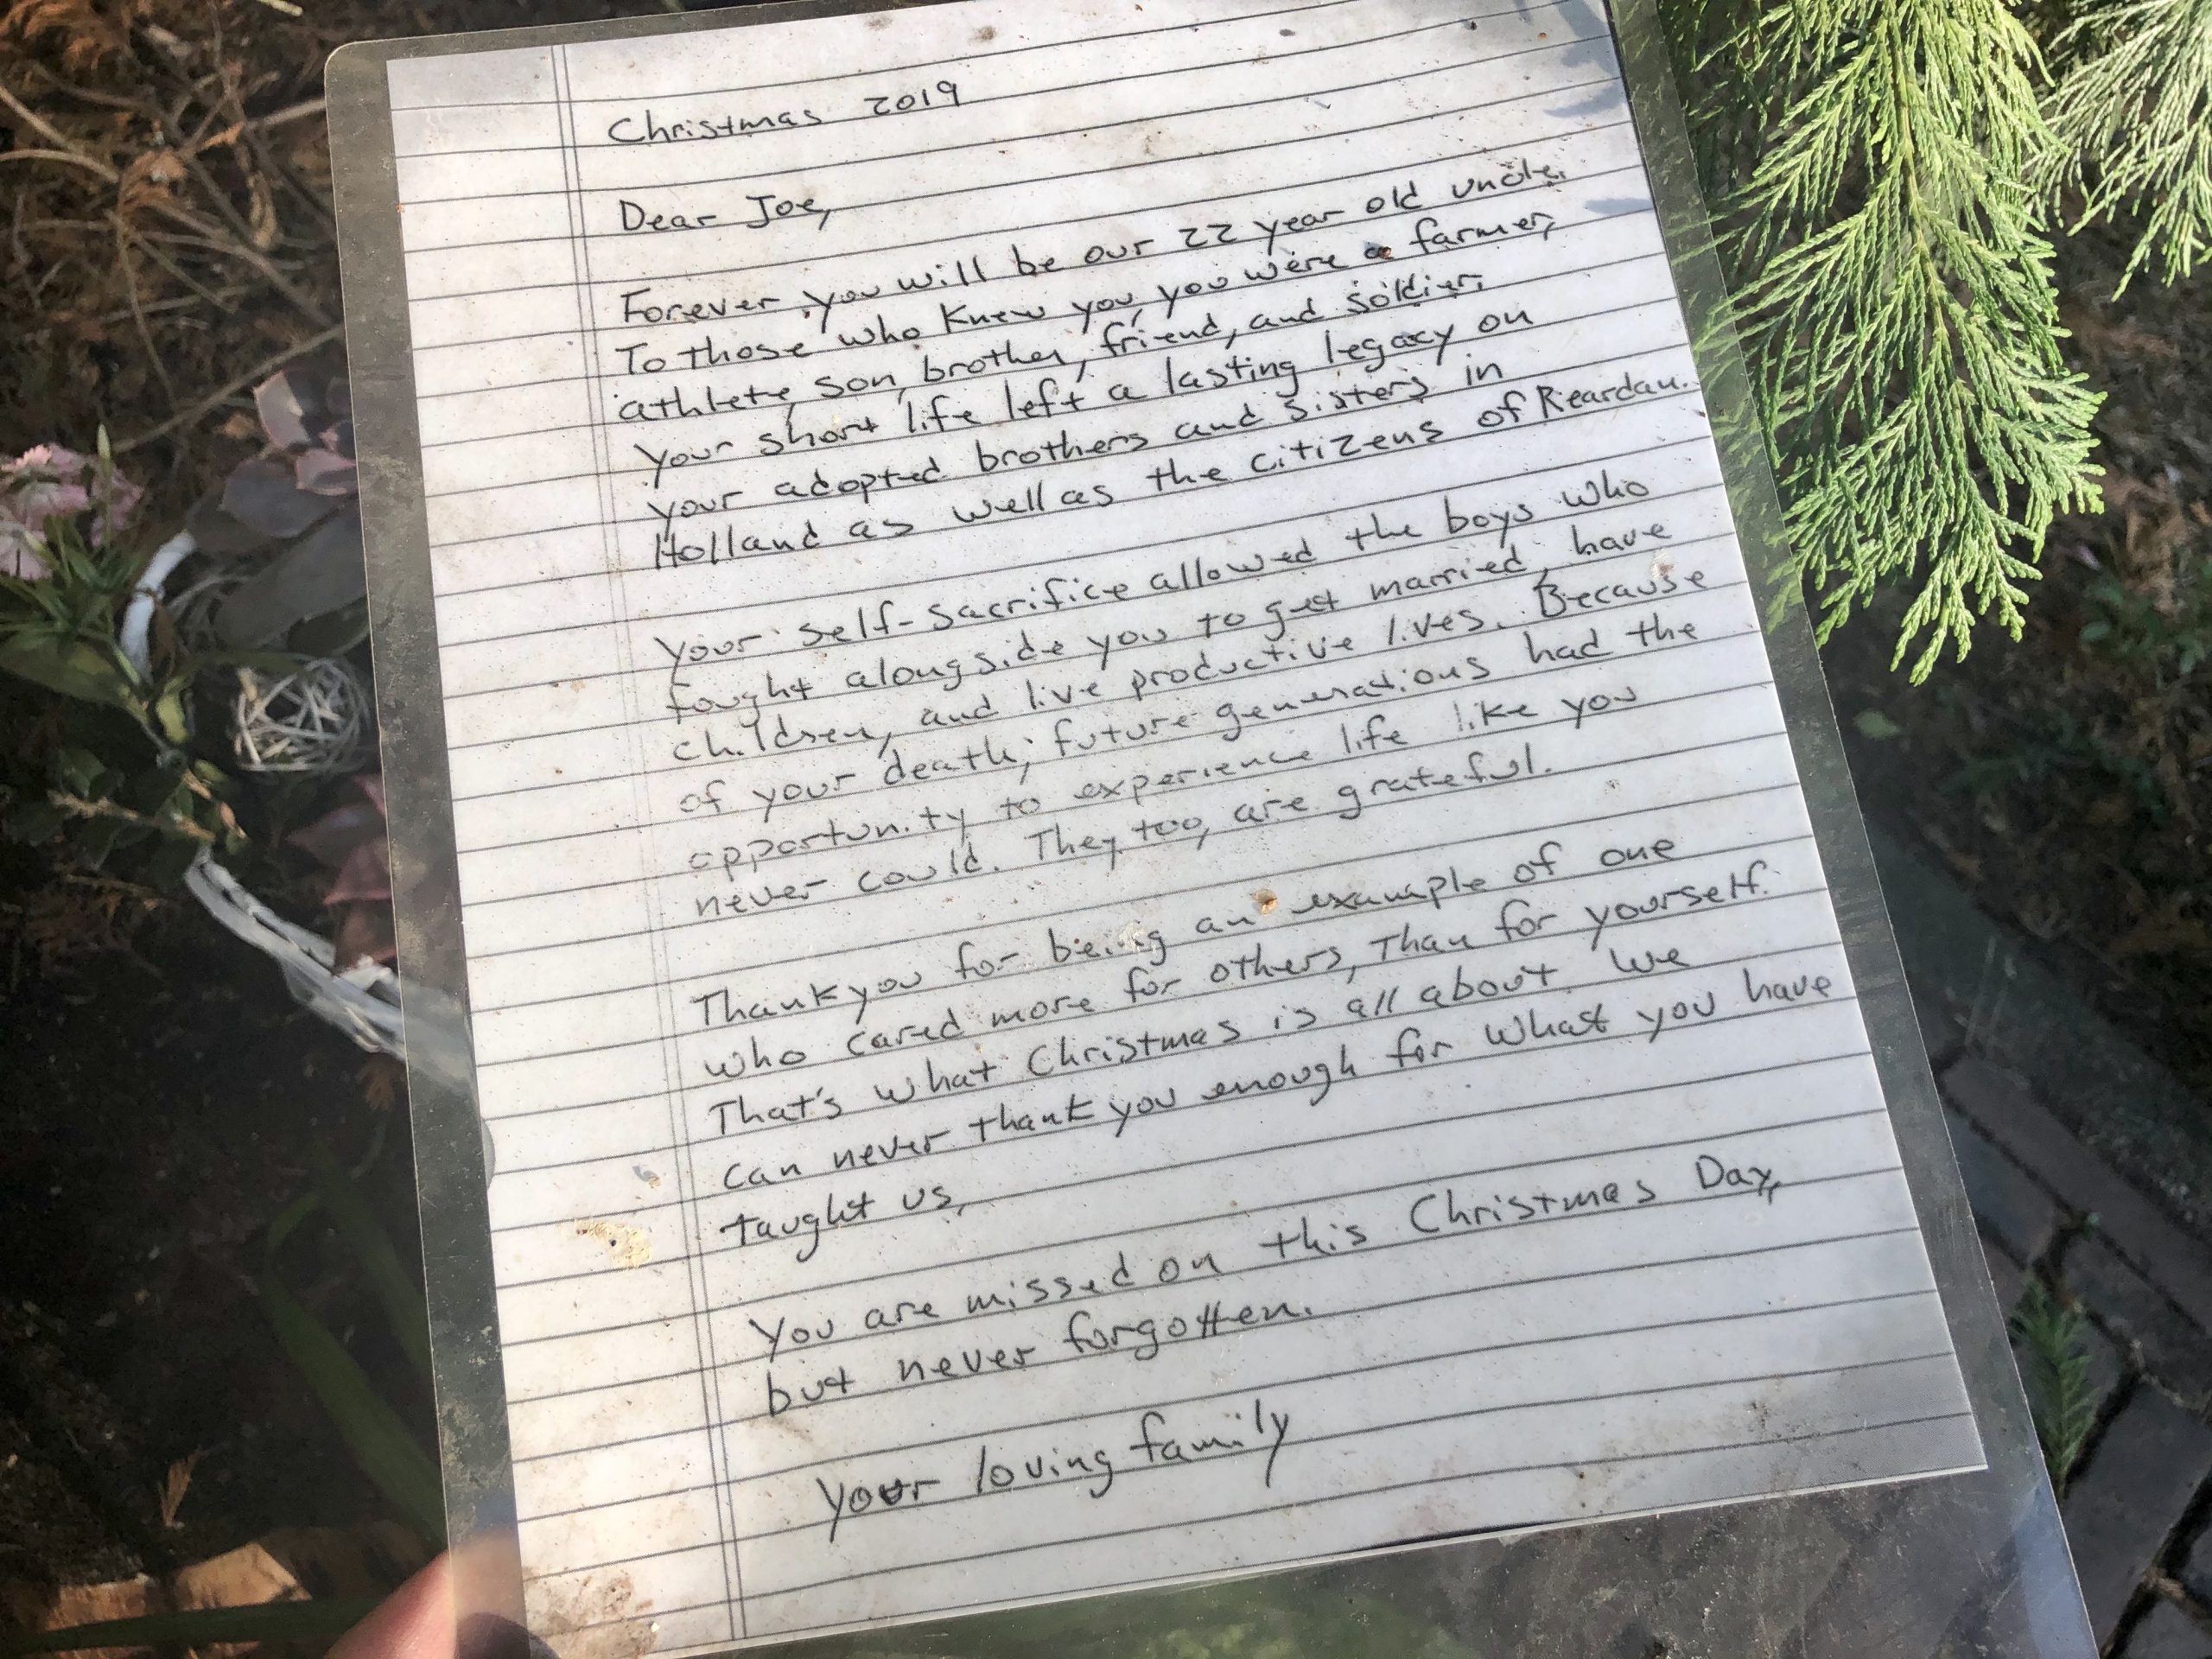 Christmas 2019
Dear Joe,
Forever you will be our 22 year old uncle.
To those who knew you, you were a farmer,
athlete, son, brother, friend, and soldier.
Your short life left a lasting legacy on
your adopted brothers and sisters in
Holland as well as the citizens of Reardan.
Your self-sacrifice allowed the boys who
fought alongside you to get married, have
children, and live productive lives. Because
of your death, future generations had the
opportunity to experience life like you
never could. They, too, are grateful.
Thank you for being an example of one
who cared more for others, Than for yourself.
That's what Christmas is all about. We
can never thank you enough for what you have
taught us.
You are missed on this Christmas Day,
but never forgotten.
Your loving family